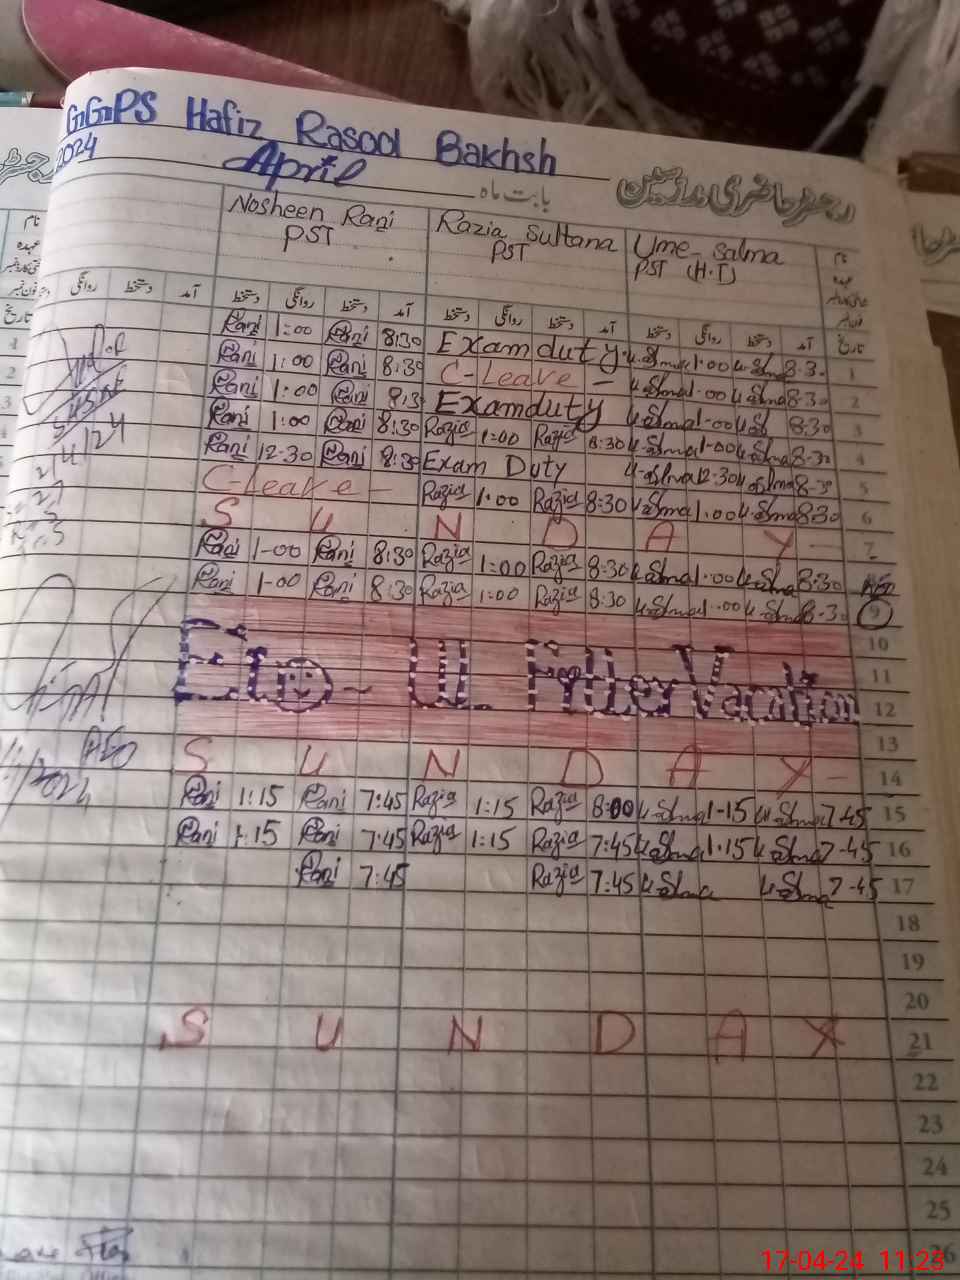 GGPS Hafiz Rasool Bakhsh
2024 April بابت ماہ رجسٹر حاضری مدرسین
Nosheen Rani Razia Sultana Ume Salma نام
PST PST PST (H.T) عہدہ
روانگی دستخط آمد دستخط روانگی دستخط آمد دستخط روانگی دستخط آمد دستخط روانگی دستخط آمد تاریخ
Rani 1:00 Rani 8:30 Exam duty u-Slma 1-00 u-Slma 8-30 1
Rani 1:00 Rani 8:30 C-Leave - u-Slma 1-00 u-Slma 8-30 2
Rani 1:00 Rani 8:3 Exam duty u-Slma 1-00 8:30 3
Rani 1:00 Rani 8:30 Razia 1:00 Razia 8:30 u-Slma 1-00 8-30 4
Rani 12-30 Rani 8:30 Exam Duty u-Slma 12-30 u-Slma 8-30 5
C-Leave - Razia 1:00 Razia 8:30 u-Slma 1:00 u-Slma 8:30 6
S U N D A Y - 7
Rani 1-00 Rani 8:30 Razia 1:00 Razia 8:30 u-Slma 1-00 u-Slma 8-30
Rani 1-00 Rani 8:30 Razia 1:00 Razia 8:30 u-Slma 1-00 u-Slma 8-30 9
10
Eid-Ul-Fitter Vacation 11
12
13
AEO S U N D A Y - 14
Rani 1:15 Rani 7:45 Razia 1:15 Razia 8:00 u-Slma 1-15 u-Slma 7-45 15
Rani 1:15 Rani 7:45 Razia 1:15 Razia 7:45 u-Slma 1-15 u-Slma 7-45 16
Rani 7:45 Razia 7:45 u-Slma u-Slma 7-45 17
18
19
20
S U N D A Y 21
22
23
24
25
26
17-04-24 11:23